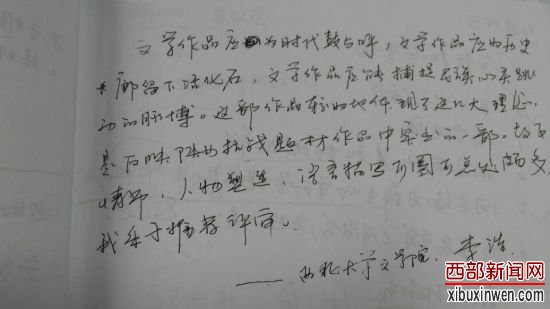 文学作品应为时代鼓与呼，文学作品应为历史
长廊留下活化石，文学作品应能捕捉民族心灵跳
动的脉搏。这部作品较好地体现了这几大理念，
是反映陕西抗战题材作品中突出的一部。故事
情节、人物塑造、语言描写可圈可点处颇多，
我乐于推荐评审。
——西北大学文学院、李浩
西部新闻网
xibuxinwen.com